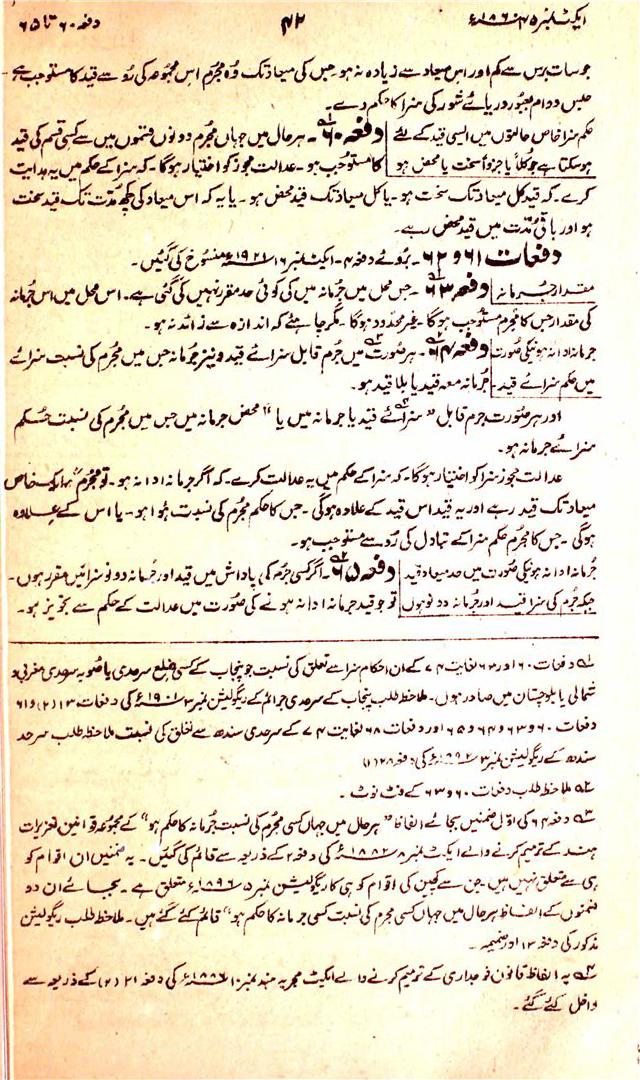 ایکٹ نمبر ۴۵ ۱۸۶۰ء ۴۲ دفعہ ۶۰ تا ۶۵
جو سات برس سے کم اور اس میعاد سے زیادہ نہ ہو۔ جس کی میعاد تک وہ مجرم اس مجموعہ کی رُو سے قید کا مستوجب ہے
حبس دوام بعبور دریائے شور کی سزا کا حکم دے۔
حکم سزا خاص حالتوں میں ایسی قید کے لئے دفعہ ۶۰۔ ہر حال میں جہاں مجرم دونوں قسموں میں سے کسی قسم کی قید
ہو سکتا ہے جو کلاً یا جزواً سخت یا محض ہو کا مستوجب ہو۔ عدالت مجوز کو اختیار ہوگا۔ کہ سزا کے حکم میں یہ ہدایت
کرے۔ کہ قید کل میعاد تک سخت ہو۔ یا کل میعاد تک قید محض ہو۔ یا یہ کہ اس میعاد کی کچھ مدت تک قید سخت
ہو اور باقی مدت میں قید محض رہے۔
دفعات ۶۱ و ۶۲۔ بروئے دفعہ ۴۔ ایکٹ نمبر ۱۶ ۱۹۲۱ء منسوخ کی گئیں۔
مقدار جرمانہ دفعہ ۶۳۔ جس محل میں جرمانہ میں کی کوئی حد مقرر نہیں کی گئی ہے۔ اس محل میں اس جرمانہ
کی مقدار جس کا مجرم مستوجب ہوگا۔ غیر محدود ہوگا۔ مگر چاہئے کہ اندازہ سے زائد نہ ہو۔
جرمانہ ادا نہ ہونیکی صورت دفعہ ۶۴۔ ہر صورت میں جرم قابل سزائے قید و نیز جرمانہ جس میں مجرم کی نسبت سزائے
میں حکم سزائے قید۔ جرمانہ معہ قید یا بلا قید ہو۔
اور ہر صورت جرم قابل "سزائے قید یا جرمانہ میں یا" محض جرمانہ میں جس میں مجرم کی نسبت حکم
سزائے جرمانہ ہو۔
عدالت مجوز سزا کو اختیار ہوگا۔ کہ سزا کے حکم میں یہ عدالت کرے۔ کہ اگر جرمانہ ادا نہ ہو۔ تو مجرم ایک خاص
میعاد تک قید رہے اور یہ قید اس قید کے علاوہ ہوگی۔ جس کا حکم مجرم کی نسبت ہوا ہو۔ یا اس کے علاوہ
ہوگی۔ جس کا مجرم حکم سزا کے تبادل کی رُو سے مستوجب ہو۔
جرمانہ ادا نہ ہونیکی صورت میں حد میعاد قید دفعہ ۶۵۔ اگر کسی جرم کی پاداش میں قید اور جرمانہ دونو سزائیں مقرر ہوں۔
جبکہ جرم کی سزا قید اور جرمانہ دونوں ہوں تو جو قید جرمانہ ادا نہ ہونے کی صورت میں عدالت کے حکم سے تجویز ہو۔
۱؎ دفعات ۶۰ اور ۶۳ لغایت ۷۴ کے ان احکام سزا سے تعلق کی نسبت جو پنجاب کے کسی ضلع سرحدی یا صوبہ سرحدی مغربی و
شمالی یا بلوچستان میں صادر ہوں۔ ملاحظہ طلب پنجاب کے سرحدی جرائم کے ریگولیشن نمبر ۳ ۱۹۰۱ء کی دفعات ۱۳ (۲) و ۶۱
دفعات ۶۰ و ۶۳ و ۶۴ و ۶۵ اور دفعات ۶۸ لغایت ۷۴ کے سرحدی سندھ سے تعلق کی نسبت ملاحظہ طلب سرحد
سندھ کے ریگولیشن نمبر ۳ ۱۸۹۲ء کی دفعہ ۲۸ (۱)
۲؎ ملاحظہ طلب دفعات ۶۰ و ۶۳ کے فٹ نوٹ۔
۳؎ دفعہ ۶۴ کی اوّل ضمنیں بجائے الفاظ "ہر حال میں جہاں کسی مجرم کی نسبت جرمانہ کا حکم ہو" کے مجموعہ قوانین تعزیرات
ہند کے ترمیم کرنے والے ایکٹ نمبر ۸ ۱۸۸۲ء کی دفعہ ۲ کے ذریعہ سے قائم کی گئیں۔ یہ ضمنیں ان اقوام کو
ہی سے متعلق نہیں ہیں۔ جن سے کچین کی اقوام کو ہی کا ریگولیشن نمبر ۵ ۱۸۹۶ء متعلق ہے۔ بجائے ان دو
ضمنوں کے الفاظ ہر حال میں جہاں کسی مجرم کی نسبت کسی جرمانہ کا حکم ہو" قائم کئے گئے ہیں۔ ملاحظہ طلب ریگولیشن
مذکور کی دفعہ ۱۲ اور ضمیمہ۔
۴؎ یہ الفاظ قانون فوجداری کے ترمیم کرنے والے ایکٹ مجریہ ہند نمبر ۱۰ ۱۸۸۶ء کی دفعہ ۲۱ (۲) کے ذریعہ سے
داخل کئے گئے۔